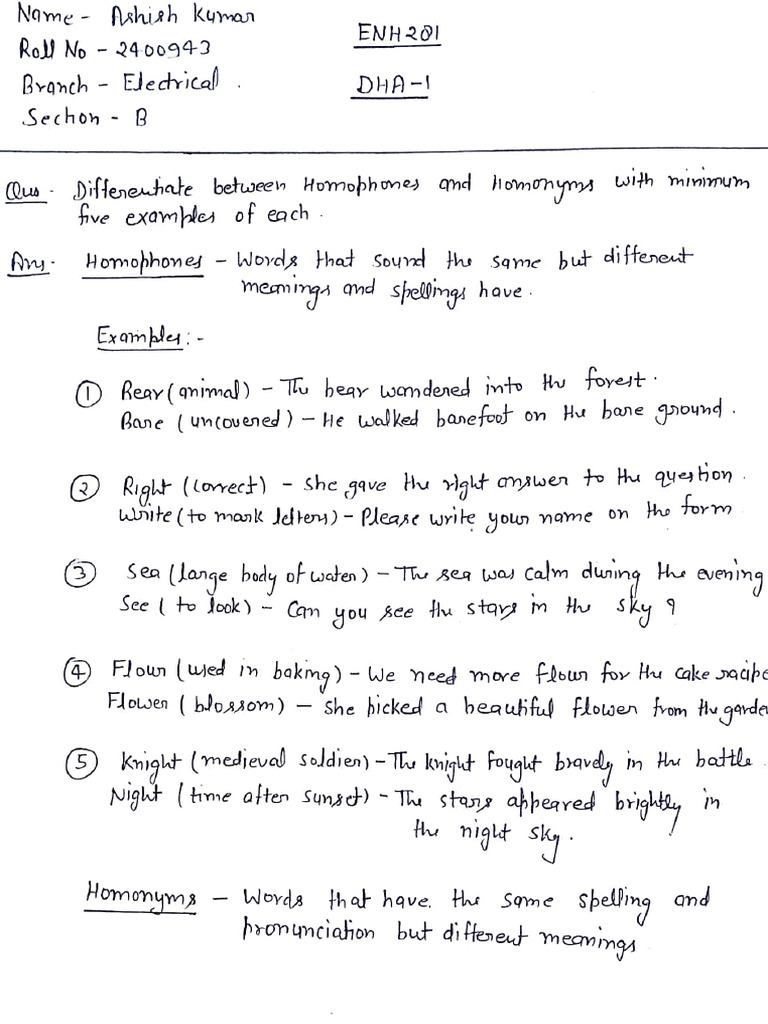 Name - Ashish Kumar
Roll No - 2400943
Branch - Electrical .
Section - B
ENH201
DHA-1
Ques . Differentiate between Homophones and Homonyms with minimum
five examples of each .
Ans . Homophones - Words that sound the same but different
meanings and spellings have .
Examples : -
① Bear (animal) - The bear wandered into the forest .
Bare (uncovered) - He walked barefoot on the bare ground .
② Right (correct) - She gave the right answer to the question .
Write (to mark letters) - Please write your name on the form
③ Sea (large body of water) - The sea was calm during the evening
See (to look) - Can you see the stars in the sky ?
④ Flour (used in baking) - We need more flour for the cake recipe
Flower (blossom) - She picked a beautiful flower from the garde
⑤ Knight (medieval soldier) - The knight fought bravely in the battle .
Night (time after sunset) - The stars appeared brightly in
the night sky .
Homonyms - Words that have the same spelling and
pronunciation but different meanings